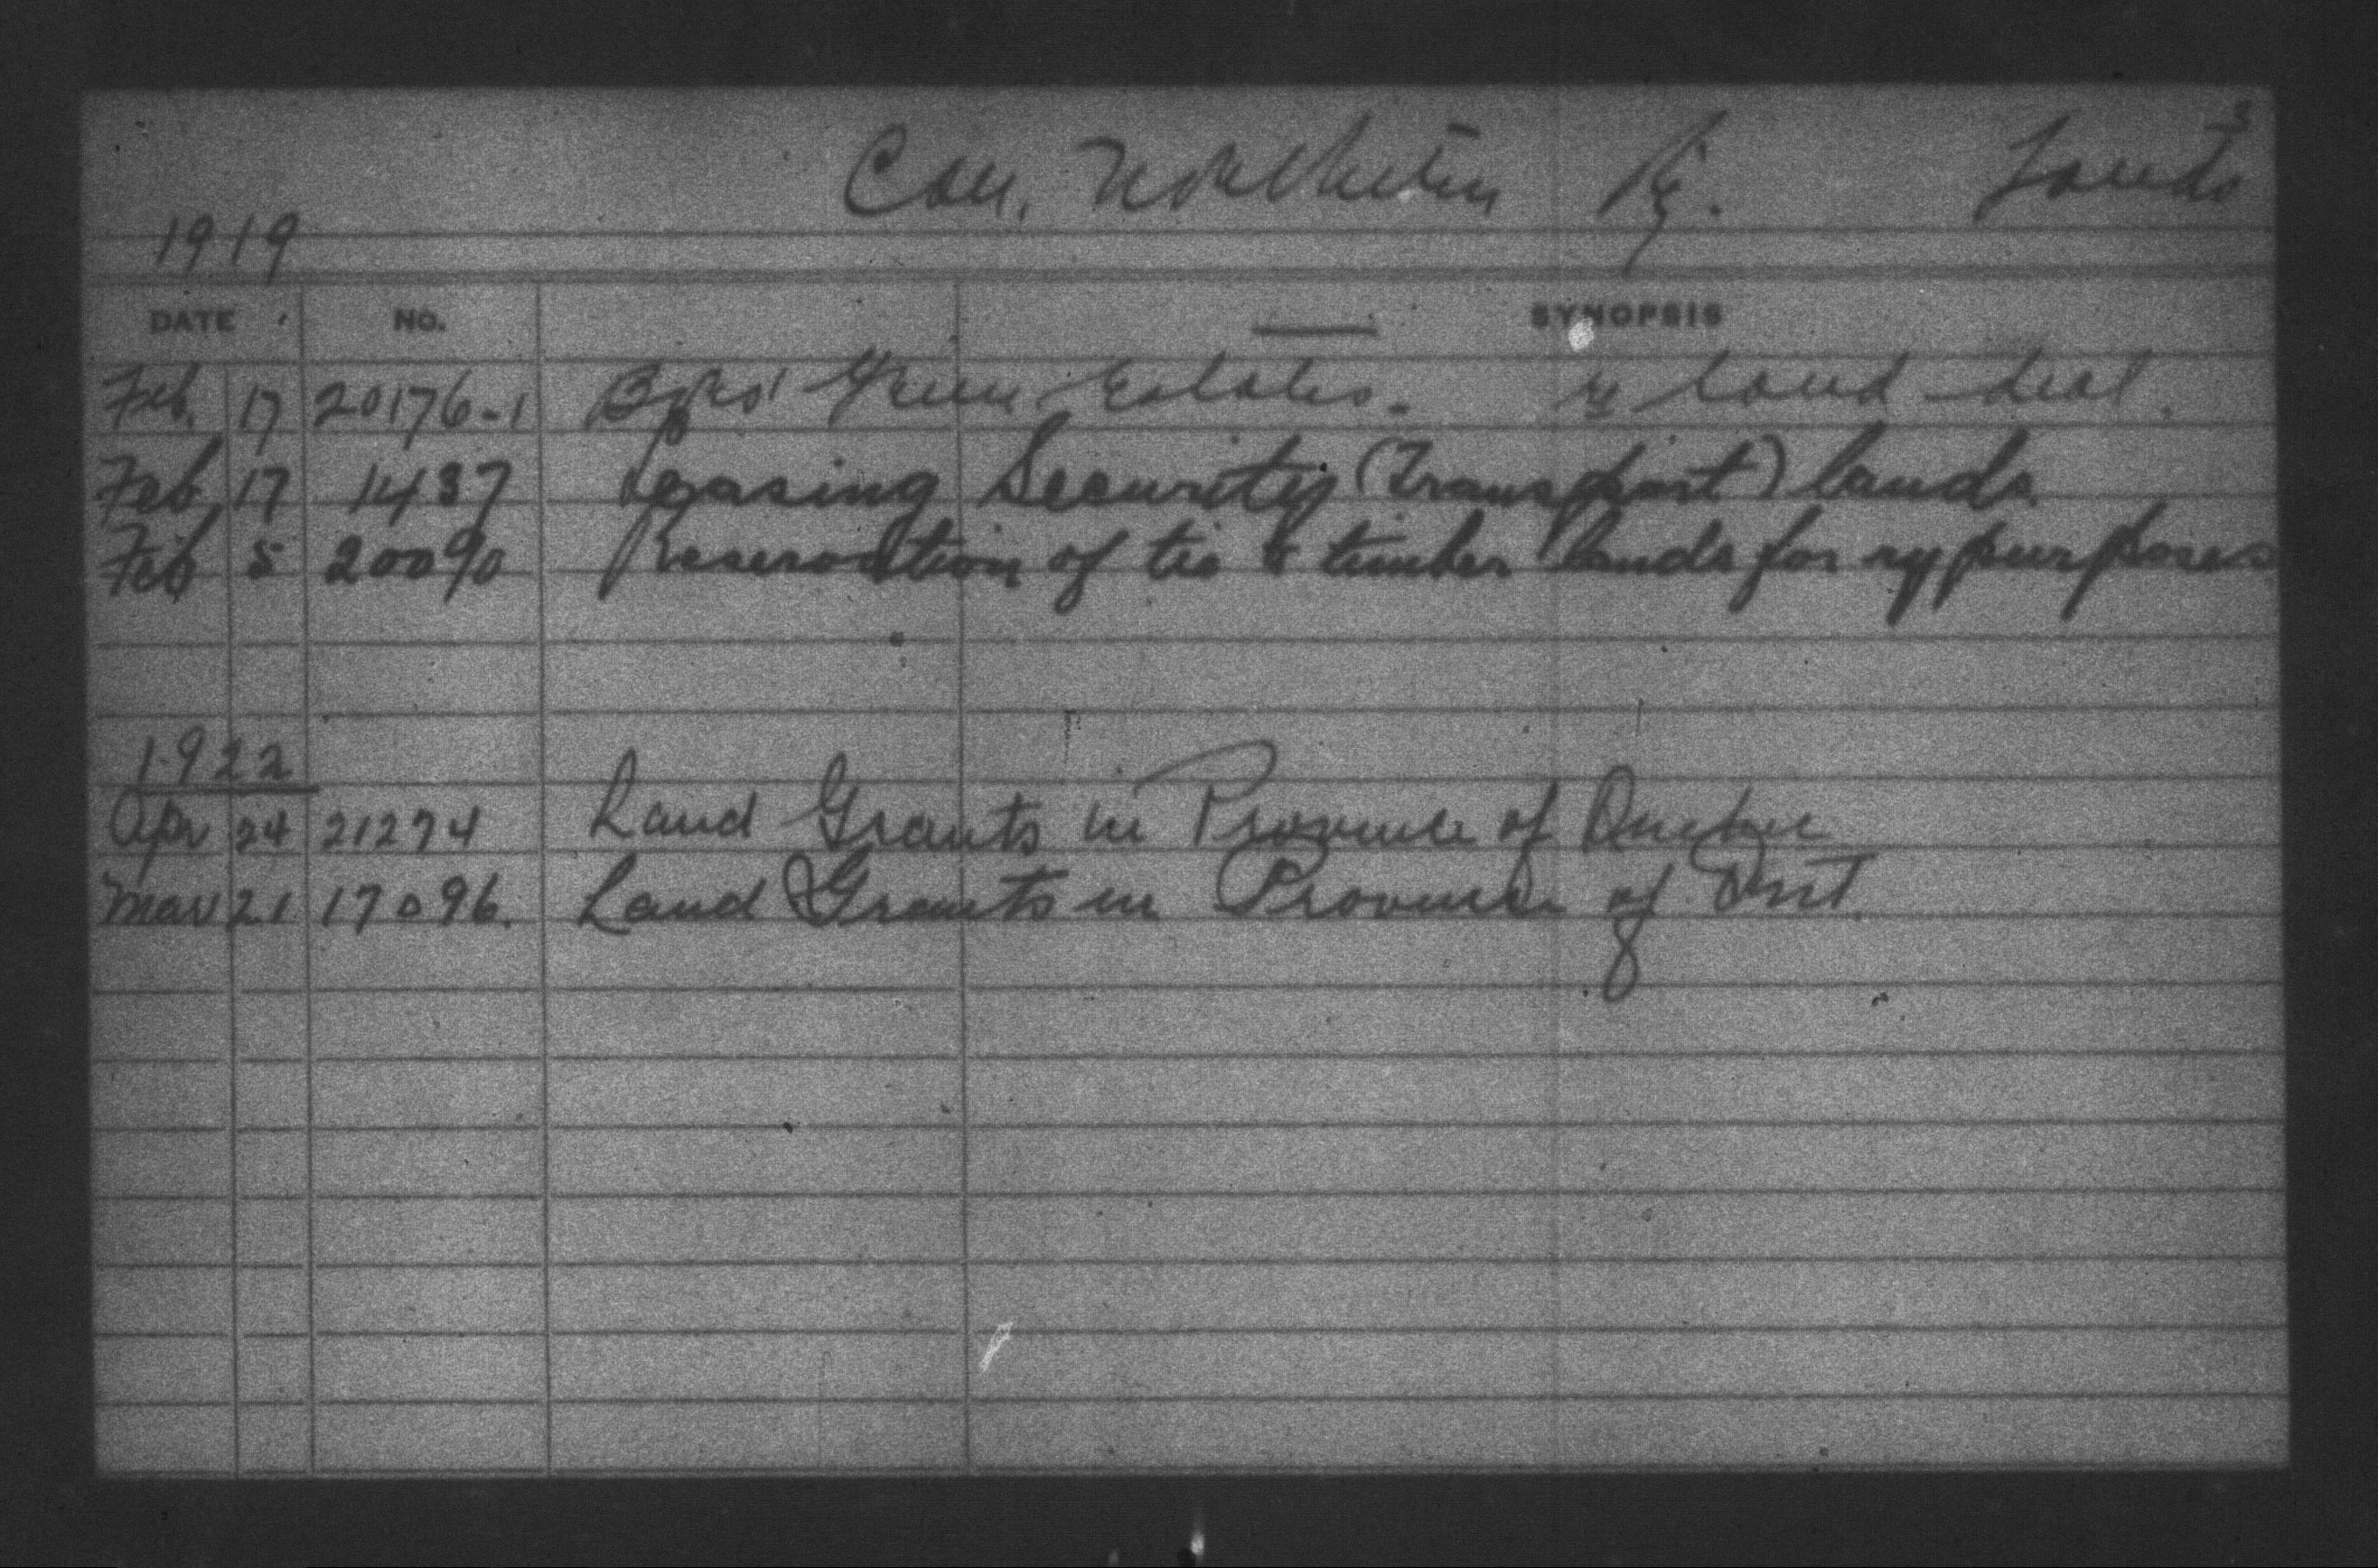 3
Can. Northern Ry. Lands
1919
DATE No. SYNOPSIS
Feb. 17 20176-1 Green Estates. re land deal.
Feb 17 1437 Leasing Security (Transport) lands
Feb 5 20090 Reservation of tie & timber lands for ry purposes
1922
Apr 24 21274 Land Grants in Province of Quebec
Mar 21 17096. Land Grants in Province of Ont.